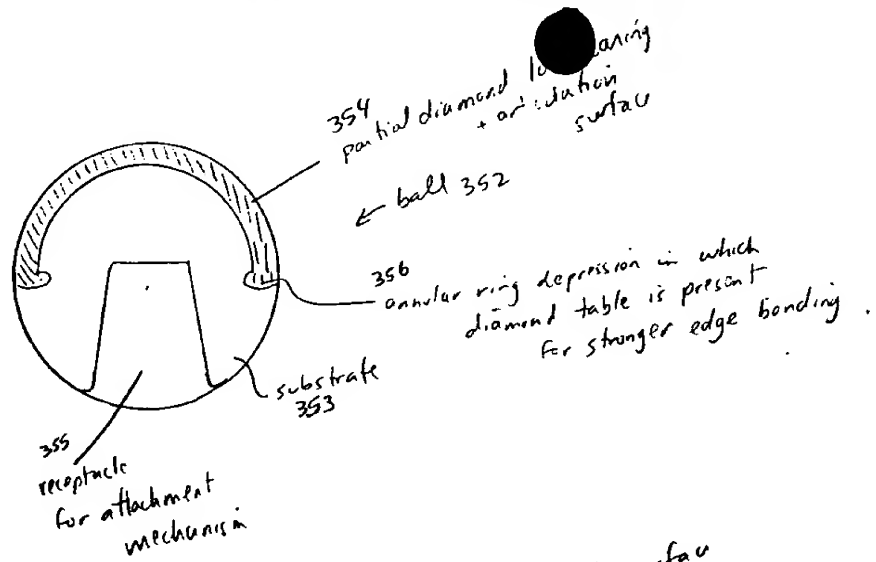 354
partial diamond
+ surface
← ball 352
356
annular ring depression in which
diamond table is present
for stronger edge bonding.
substrate
353
355
receptacle
for attachment
mechanism